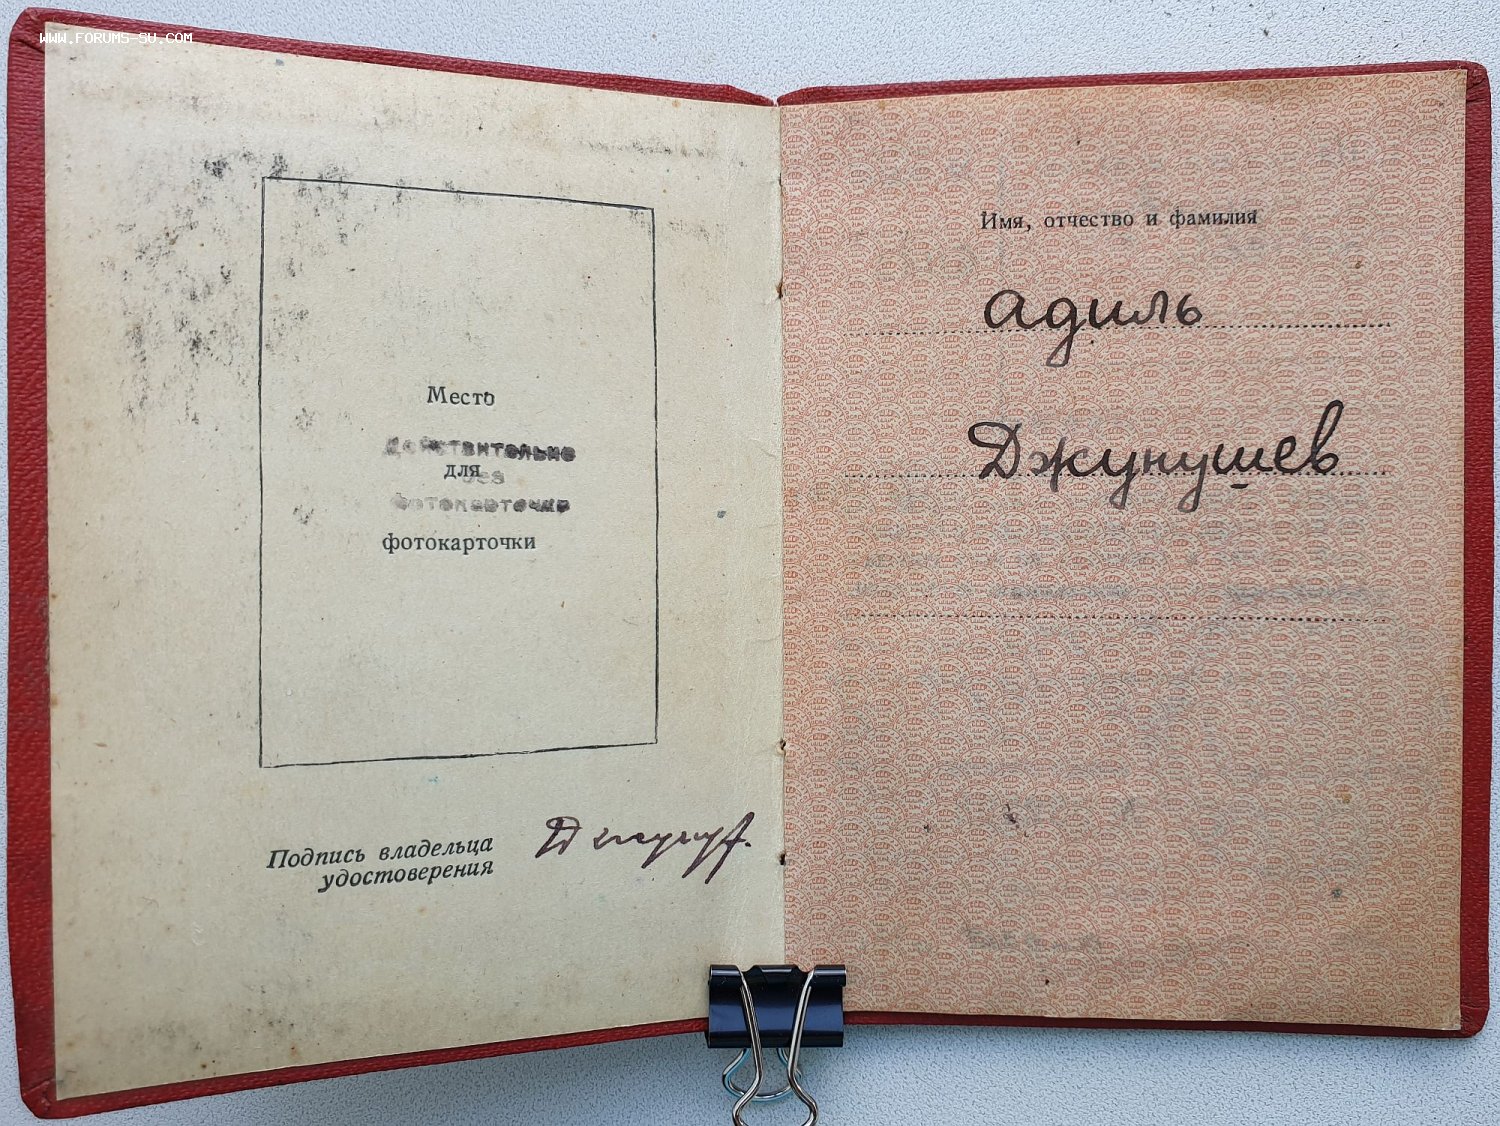 WWW.FORUMS-SU.COM
Место
Действительно
для
без
фотокарточки
фотокарточки
Подпись владельца
удостоверения
Имя, отчество и фамилия
Адиль
Джунушев